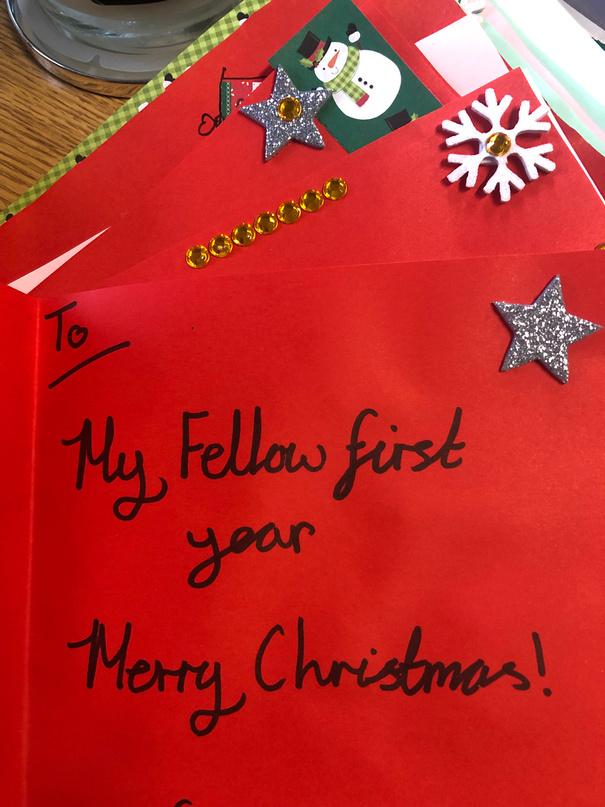 To
My Fellow first
year
Merry Christmas!